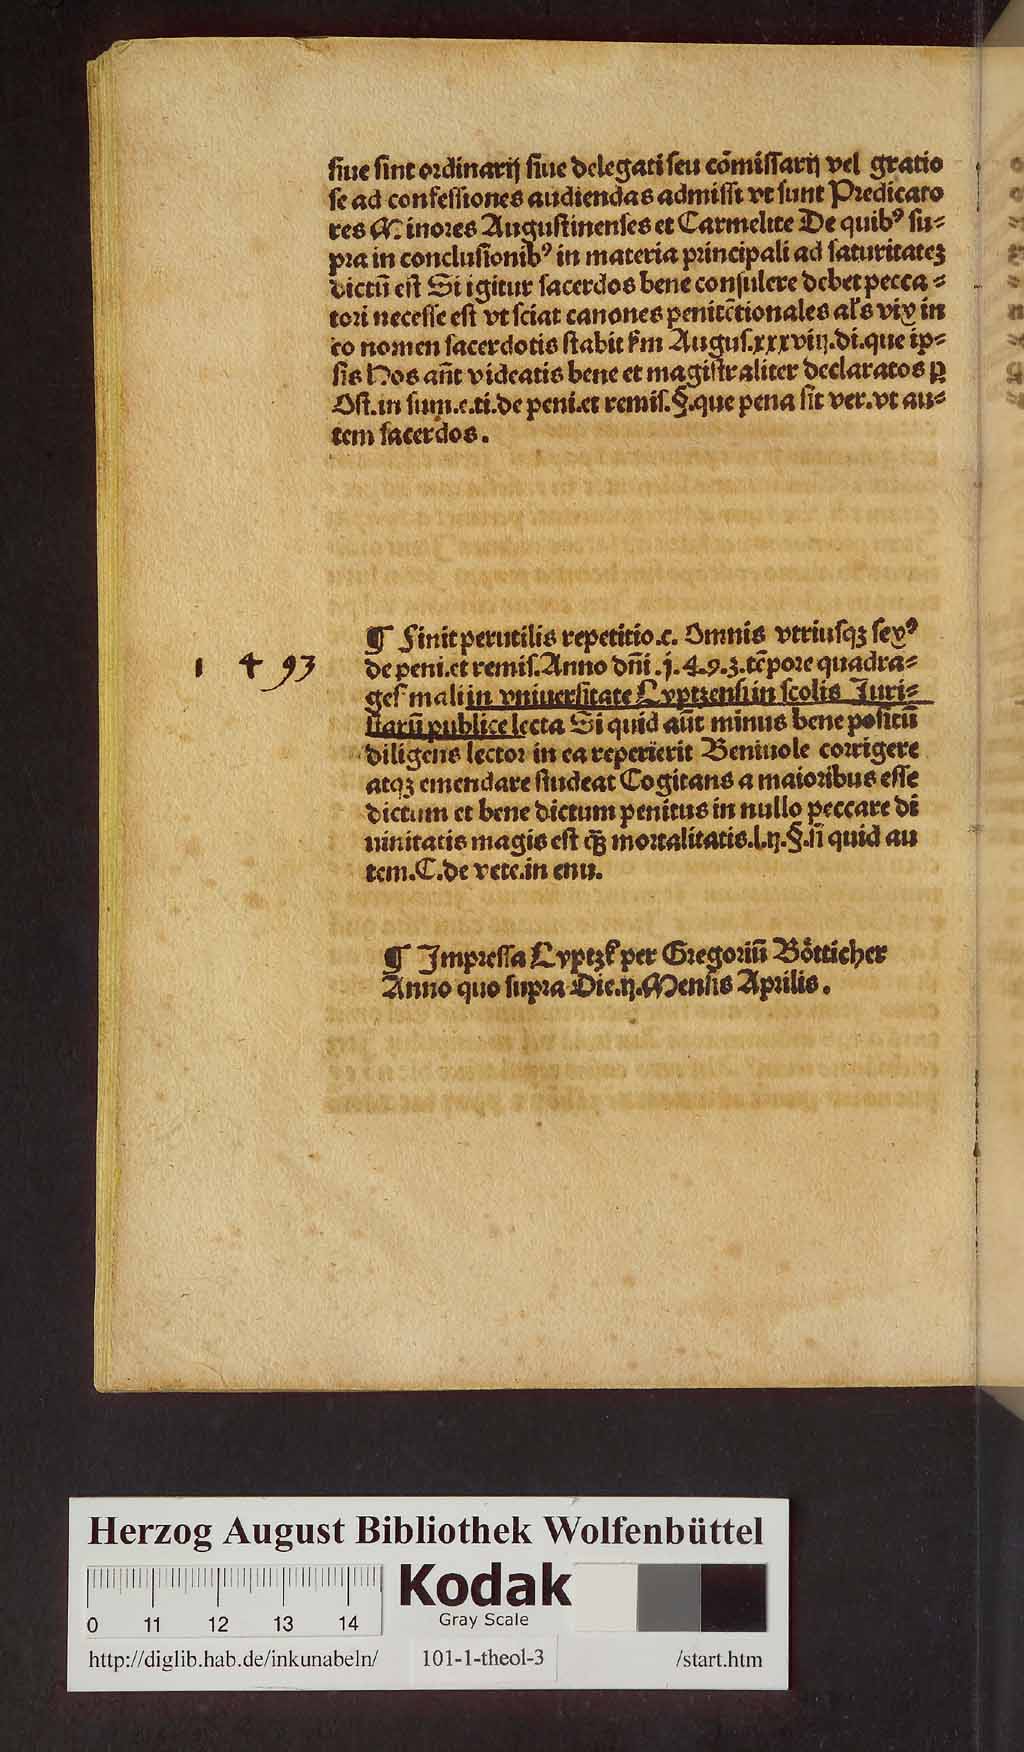 siue sint ordinarij siue delegati seu cōmissarij vel gratio
se ad confessiones audiendas admissi vt sunt Predicato
res Minores Augustinenses et Carmelite De quibꝰ su⸗
pra in conclusionibꝰ in materia principali ad saturitateꝫ
dictū est Si igitur sacerdos bene consulere debet pecca⸗
tori necesse est vt sciat canones penitētionales als vix in
eo nomen sacerdotis stabit km Augus.xxxviij.di.que ip⸗
sis Hos aūt videatis bene et magistraliter declaratos ꝑ
Ost.in sum.e.ti.de peni.et remis.§.que pena sit ver.vt au⸗
tem sacerdos.
¶ Finit perutilis repetitio.c. Omnis vtriusqꝫ sexꝰ
de peni.et remis.Anno dñi .j.4.9.3.tēpore quadra⸗
gesimali in vniuersitate Lyptzensi in scolis Juri⸗
starū publice lecta Si quid aūt minus bene positū
diligens lector in ea reperierit Beniuole corrigere
atqꝫ emendare studeat Cogitans a maioribus esse
dictum et bene dictum penitus in nullo peccare di
uinitatis magis est ꝙ̄ mortalitatis.l.ij.§.si quid au
tem.C.de vete.in enu.
1 4 93
¶ Impressa Lyptzk per Gregoriū Bötticher
Anno quo supra Die.ij.Mensis Aprilis.
Herzog August Bibliothek Wolfenbüttel
Kodak
Gray Scale
0 11 12 13 14
http://diglib.hab.de/inkunabeln/ 101-1-theol-3 /start.htm